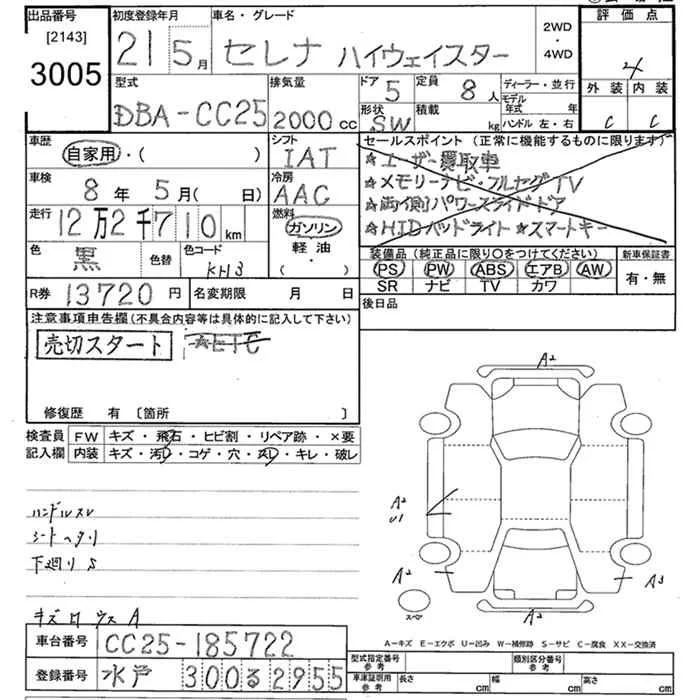 出品番号 初度登録年月 車名・グレード 2WD・4WD 評価点
[2143]
3005 21 5月 セレナ ハイウェイスター 4
型式 排気量 ドア 5 定員 8人 ディーラー・並行 外装 内装
DBA-CC25 2000cc 形状 SW 積載 kg モデル年式 年 C C
ハンドル 左・右
車歴 シフト セールスポイント(正常に機能するものに限ります)
自家用・( ) IAT ☆ユーザー買取車
車検 冷房 ☆メモリーナビ・フルセグTV
8年5月( 日) AAC ☆両側パワースライドドア
走行 12万2千710km 燃料 ガソリン ☆HIDヘッドライト☆スマートキー
軽油・( )
色 黒 色替 色コード KH3 装備品(純正品に限り○をつけてください) 新車保証書
PS PW ABS エアB AW 有・無
SR ナビ TV カワ
R券 13720円 名変期限 月 日 後日品
注意事項申告欄(不具合内容等は具体的に記入して下さい)
売切スタート ☆ETC
修復歴 有 [箇所 ]
検査員 FW キズ・飛石・ヒビ割・リペア跡・×要
記入欄 内装 キズ・汚レ・コゲ・穴・スレ・キレ・破レ
A2
A2
U1
A2
A3
A2
スペア
ハンドルスレ
シートヘタリ
下廻りS
A-キズ E-エクボ U-凹み W-補修跡 S-サビ C-腐食 XX-交換済
車台番号 CC25-185722
登録番号 水戸 300 る 2955
型式指定番号 参考 類別区分番号 参考
車庫証明用 参考 長さ cm 幅 cm 高さ cm